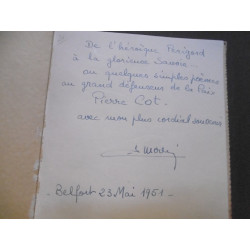 De l'héroïque Périgord
à la glorieuse Savoie...
ou quelques simples poèmes
au grand défenseur de la Paix
Pierre Cot.
avec mon plus cordial souvenir
Belfort 23 Mai 1961.